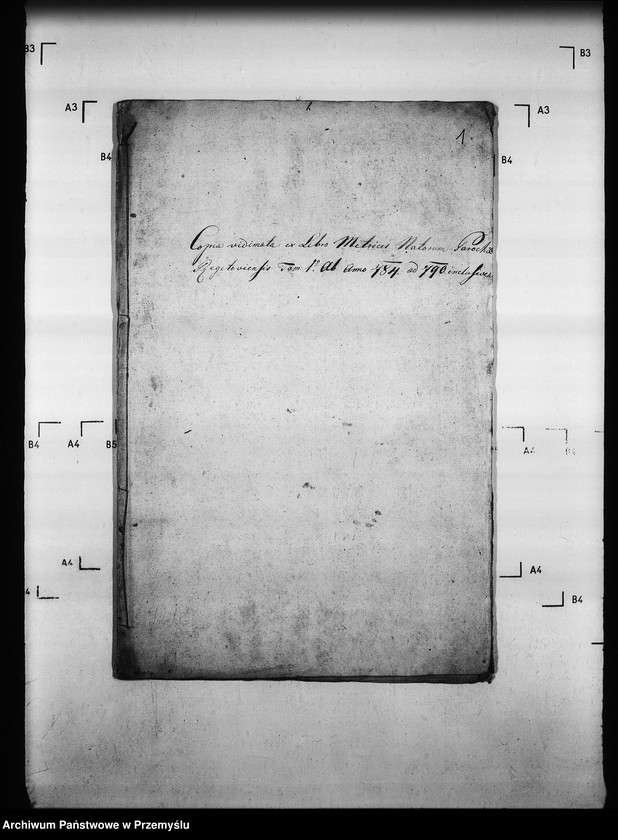 B3
B3
A3
A3
1.
1
B4
B4
Copia vidimata ex Libro Metrices Natorum Parochiæ
Tom. Iᵒ Ab Anno 784. ad 790. inclusive
B4
A4
B5
A4
B4
A4
A4
4
B4
Archiwum Państwowe w Przemyślu